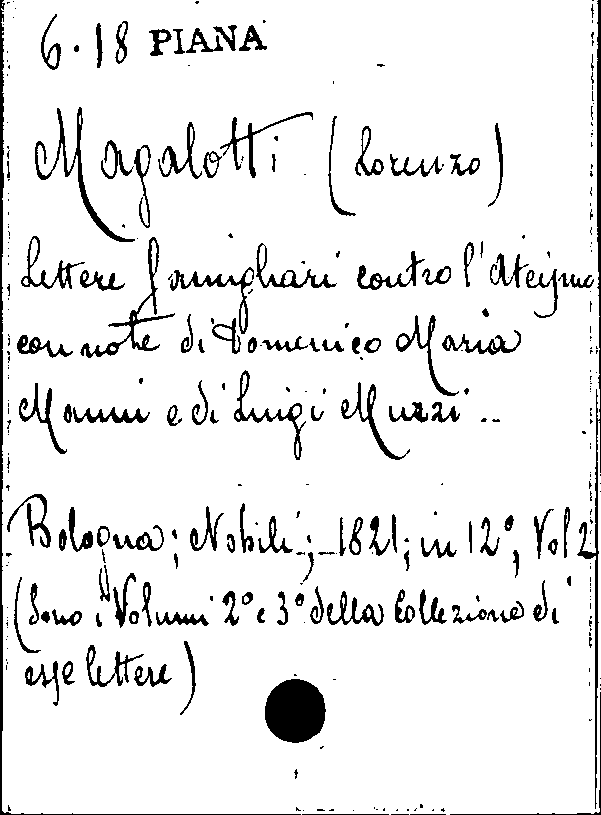 6.18 PIANA
Magalotti (Lorenzo)
Lettere famigliari contro l'Ateismo
con note di Domenico Maria
Manni e di Luigi Muzzi..
Bologna; Nobili; 1821; in 12°, Vol 2
(Sono i Volumi 2° e 3° della Collezione di
esse lettere)